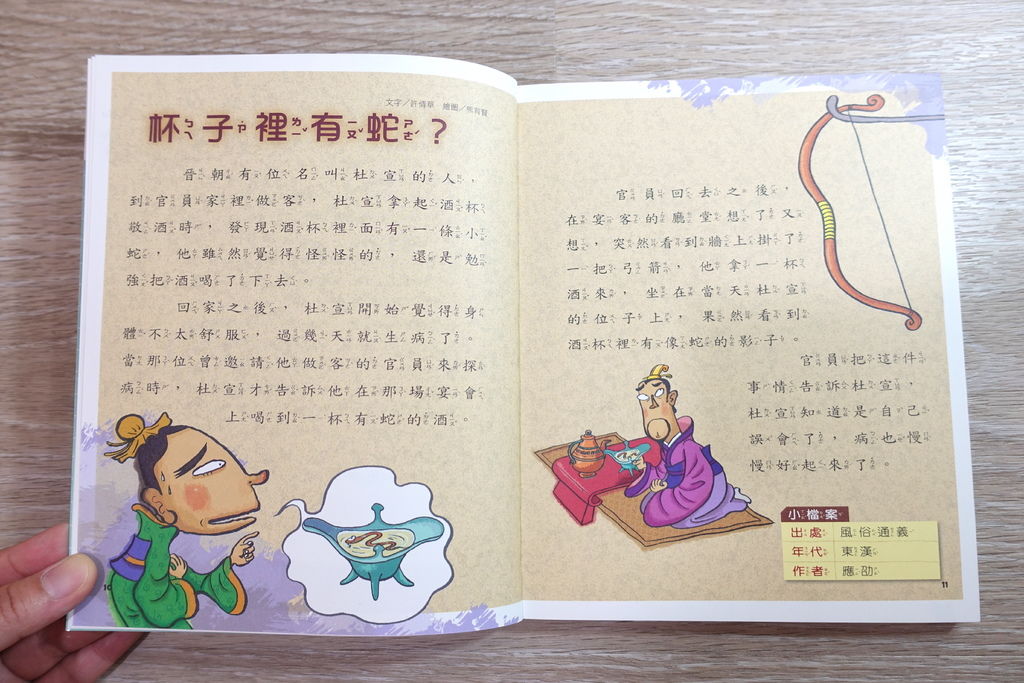 文字／許倩華 繪圖／熊育賢
杯子裡有蛇？
晉朝有位名叫杜宣的人，
到官員家裡做客，杜宣拿起酒杯
敬酒時，發現酒杯裡面有一條小
蛇，他雖然覺得怪怪的，還是勉
強把酒喝了下去。
回家之後，杜宣開始覺得身
體不太舒服，過幾天就生病了。
當那位曾邀請他做客的官員來探
病時，杜宣才告訴他在那場宴會
上喝到一杯有蛇的酒。
10
官員回去之後，
在宴客的廳堂想了又
想，突然看到牆上掛了
一把弓箭，他拿一杯
酒來，坐在當天杜宣
的位子上，果然看到
酒杯裡有像蛇的影子。
官員把這件
事情告訴杜宣，
杜宣知道是自己
誤會了，病也慢
慢好起來了。
小檔案
出處 風俗通義
年代 東漢
作者 應劭
11